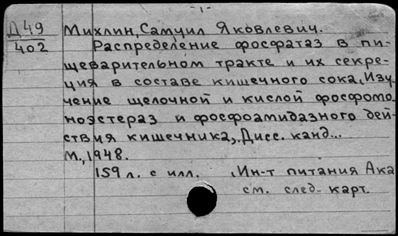 - 1 -
Д 49
402
Михлин, Самуил Яковлевич.
Распределение фосфатаз в пи-
щеварительном тракте и их секре-
ция в составе кишечного сока. Изу-
чение щелочной и кислой фосфомо-
ноэстераз и фосфоамидазного дей-
ствия кишечника,. Дисс. канд...
М., 1948.
159 л. с илл. , Ин-т питания Ака
см. след. карт.